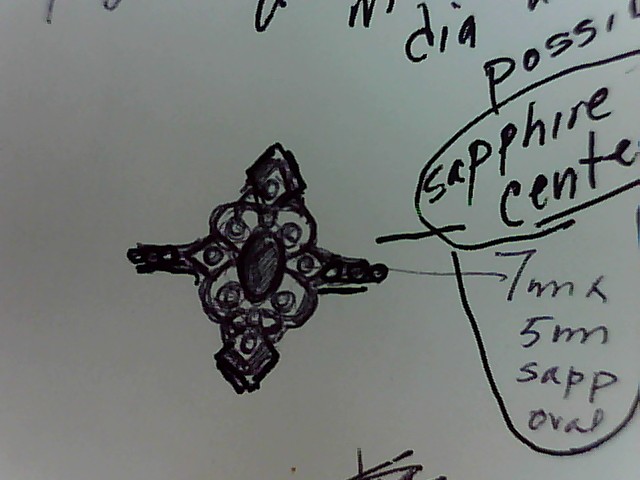 dia
possi
sapphire
cente
7mm x
5mm
sapp
oval